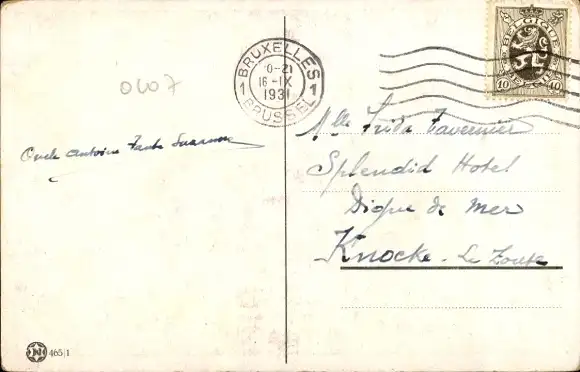 0607
BRUXELLES
1 1
0-21
16-IX
1931
BRUSSEL
BELGIQUE
BELGIË
10 40
Oncle Antoine Tante
Mlle Frida Tavernier
Splendid Hotel
Digue de Mer
Knocke - Le Zoute
465|1